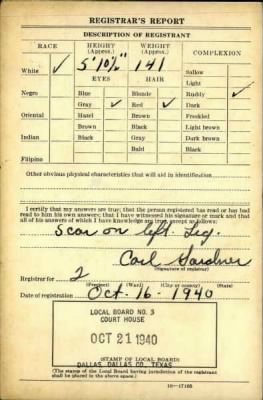 REGISTRAR'S REPORT
DESCRIPTION OF REGISTRANT
RACE HEIGHT (Approx.) WEIGHT (Approx.) COMPLEXION
White ✓ 5' 10½" 141 Sallow
EYES HAIR Light
Negro Blue Blonde Ruddy ✓
Gray ✓ Red ✓ Dark
Oriental Hazel Brown Freckled
Brown Black Light brown
Indian Black Gray Dark brown
Bald Black
Filipino
Other obvious physical characteristics that will aid in identification
I certify that my answers are true; that the person registered has read or has had
read to him his own answers; that I have witnessed his signature or mark and that
all of his answers of which I have knowledge are true, except as follows:
Scar on left Leg.
Carl Gardner
(Signature of registrar)
Registrar for 2
(Precinct) (Ward) (City or county) (State)
Date of registration Oct-16-1940
LOCAL BOARD NO. 3
COURT HOUSE
OCT 21 1940
(STAMP OF LOCAL BOARD)
DALLAS, DALLAS CO., TEXAS
(The stamp of the Local Board having jurisdiction of the registrant
shall be placed in the above space.)
16—17105